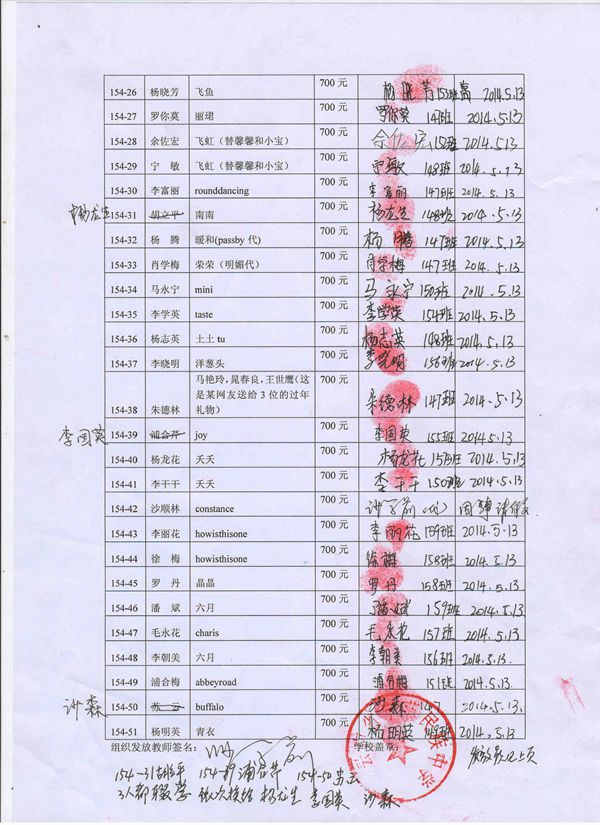 154-26 杨晓芳 飞鱼 700 元 杨晓芳 153班 2014.5.13
154-27 罗你莫 丽珺 700 元 罗你莫 147班 2014.5.13
154-28 余佐宏 飞虹（替馨馨和小宝） 700 元 余佐宏 152班 2014.5.13
154-29 宁 敏 飞虹（替馨馨和小宝） 700 元 宁敏 148班 2014.5.13
154-30 李富丽 rounddancing 700 元 李富丽 147班 2014.5.13
杨龙生 154-31 胡立平 南南 700 元 杨龙生 148班 2014.5.13
154-32 杨 腾 暖和(passby 代) 700 元 杨腾 147班 2014.5.13
154-33 肖学梅 荣荣（明媚代） 700 元 肖学梅 147班 2014.5.13
154-34 马永宁 mini 700 元 马永宁 150班 2014.5.13
154-35 李学英 taste 700 元 李学英 154班 2014.5.13
154-36 杨志英 土土 tu 700 元 杨志英 148班 2014.5.13
154-37 李晓明 洋葱头 700 元 李晓明 156班 2014.5.13
154-38 朱德林 马艳玲,晁春良,王世鹰(这
是某网友送给 3 位的过年
礼物) 700 元 朱德林 147班 2014.5.13
李国英 154-39 浦合芹 joy 700 元 李国英 155班 2014.5.13
154-40 杨龙花 天天 700 元 杨龙花 157班 2014.5.13
154-41 李干干 天天 700 元 李干干 150班 2014.5.13
154-42 沙顺林 constance 700 元
154-43 李丽花 howisthisone 700 元 李丽花 159班 2014.5.13
154-44 徐 梅 howisthisone 700 元 徐梅 158班 2014.5.13
154-45 罗 丹 晶晶 700 元 罗丹 158班 2014.5.13
154-46 潘 斌 六月 700 元 潘斌 159班 2014.5.13
154-47 毛永花 charis 700 元 毛永花 157班 2014.5.13
154-48 李朝美 六月 700 元 李朝美 156班 2014.5.13
154-49 浦合梅 abbeyroad 700 元 浦合梅 151班 2014.5.13
沙森 154-50 苏云 buffalo 700 元 沙森 147 2014.5.13
154-51 杨明英 青衣 700 元 杨明英 148班 2014.5.13
组织发放教师签名： 学校盖章：
民族中学
154-31胡立平 154-39浦合芹 154-50苏云
3人都辍学 依次换给 杨龙生 李国英 沙森